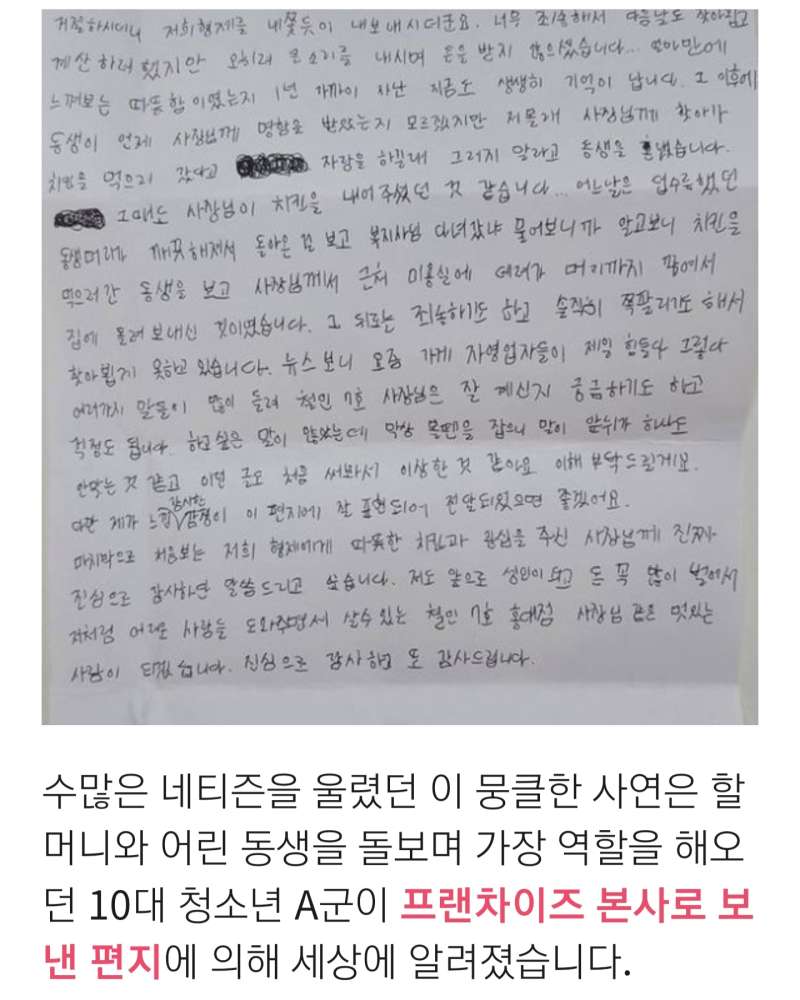 거절하시더니 저희형제를 내쫓듯이 내보내시더군요. 너무 죄송해서 다음날도 찾아뵙고
계산하려 했지만 오히려 큰소리를 내시며 돈을 받지 않으셨습니다... 얼마만에
느껴보는 따뜻함이였는지 1년 가까이 지난 지금도 생생히 기억이 납니다. 그 이후에
동생이 언제 사장님께 명함을 받았는지 모르겠지만 저몰래 사장님께 찾아가
치킨을 먹으러 갔다고 자랑을 하길래 그러지 말라고 동생을 혼냈습니다.
그때도 사장님이 치킨을 내어주셨던 것 같습니다... 어느날은 덥수룩했던
동생머리가 깨끗해져서 돌아온 걸 보고 복지사님 다녀갔냐 물어보니까 알고보니 치킨을
먹으러간 동생을 보고 사장님께서 근처 미용실에 데려가 머리까지 깎여서
집에 돌려 보내신 것이였습니다. 그 뒤로는 죄송하기도 하고 솔직히 쪽팔리기도 해서
찾아뵙게 못하고 있습니다. 뉴스보니 요즘 가게 자영업자들이 제일 힘들다 그렇다
여러가지 말들이 많이 들려 철인 7호 사장님은 잘 계신지 궁금하기도 하고
걱정도 됩니다. 하고싶은 말이 많았는데 막상 볼펜을 잡으니 말이 앞뒤가 하나도
안맞는 것 같고 이런 글도 처음 써봐서 이상한 것 같아요 이해 부탁드릴게요.
다만 제가 느낀 감사한 감정이 이 편지에 잘 표현되어 전달되었으면 좋겠어요.
마지막으로 처음보는 저희 형제에게 따뜻한 치킨과 관심을 주신 사장님께 진짜
진심으로 감사하단 말씀 드리고 싶습니다. 저도 앞으로 성인이 되고 돈 꼭 많이 벌어서
저처럼 어려운 사람들 도와주면서 살수 있는 철인 7호 홍대점 사장님 같은 멋있는
사람이 되겠습니다. 진심으로 감사하고 또 감사드립니다.
수많은 네티즌을 울렸던 이 뭉클한 사연은 할
머니와 어린 동생을 돌보며 가장 역할을 해오
던 10대 청소년 A군이 프랜차이즈 본사로 보
낸 편지에 의해 세상에 알려졌습니다.